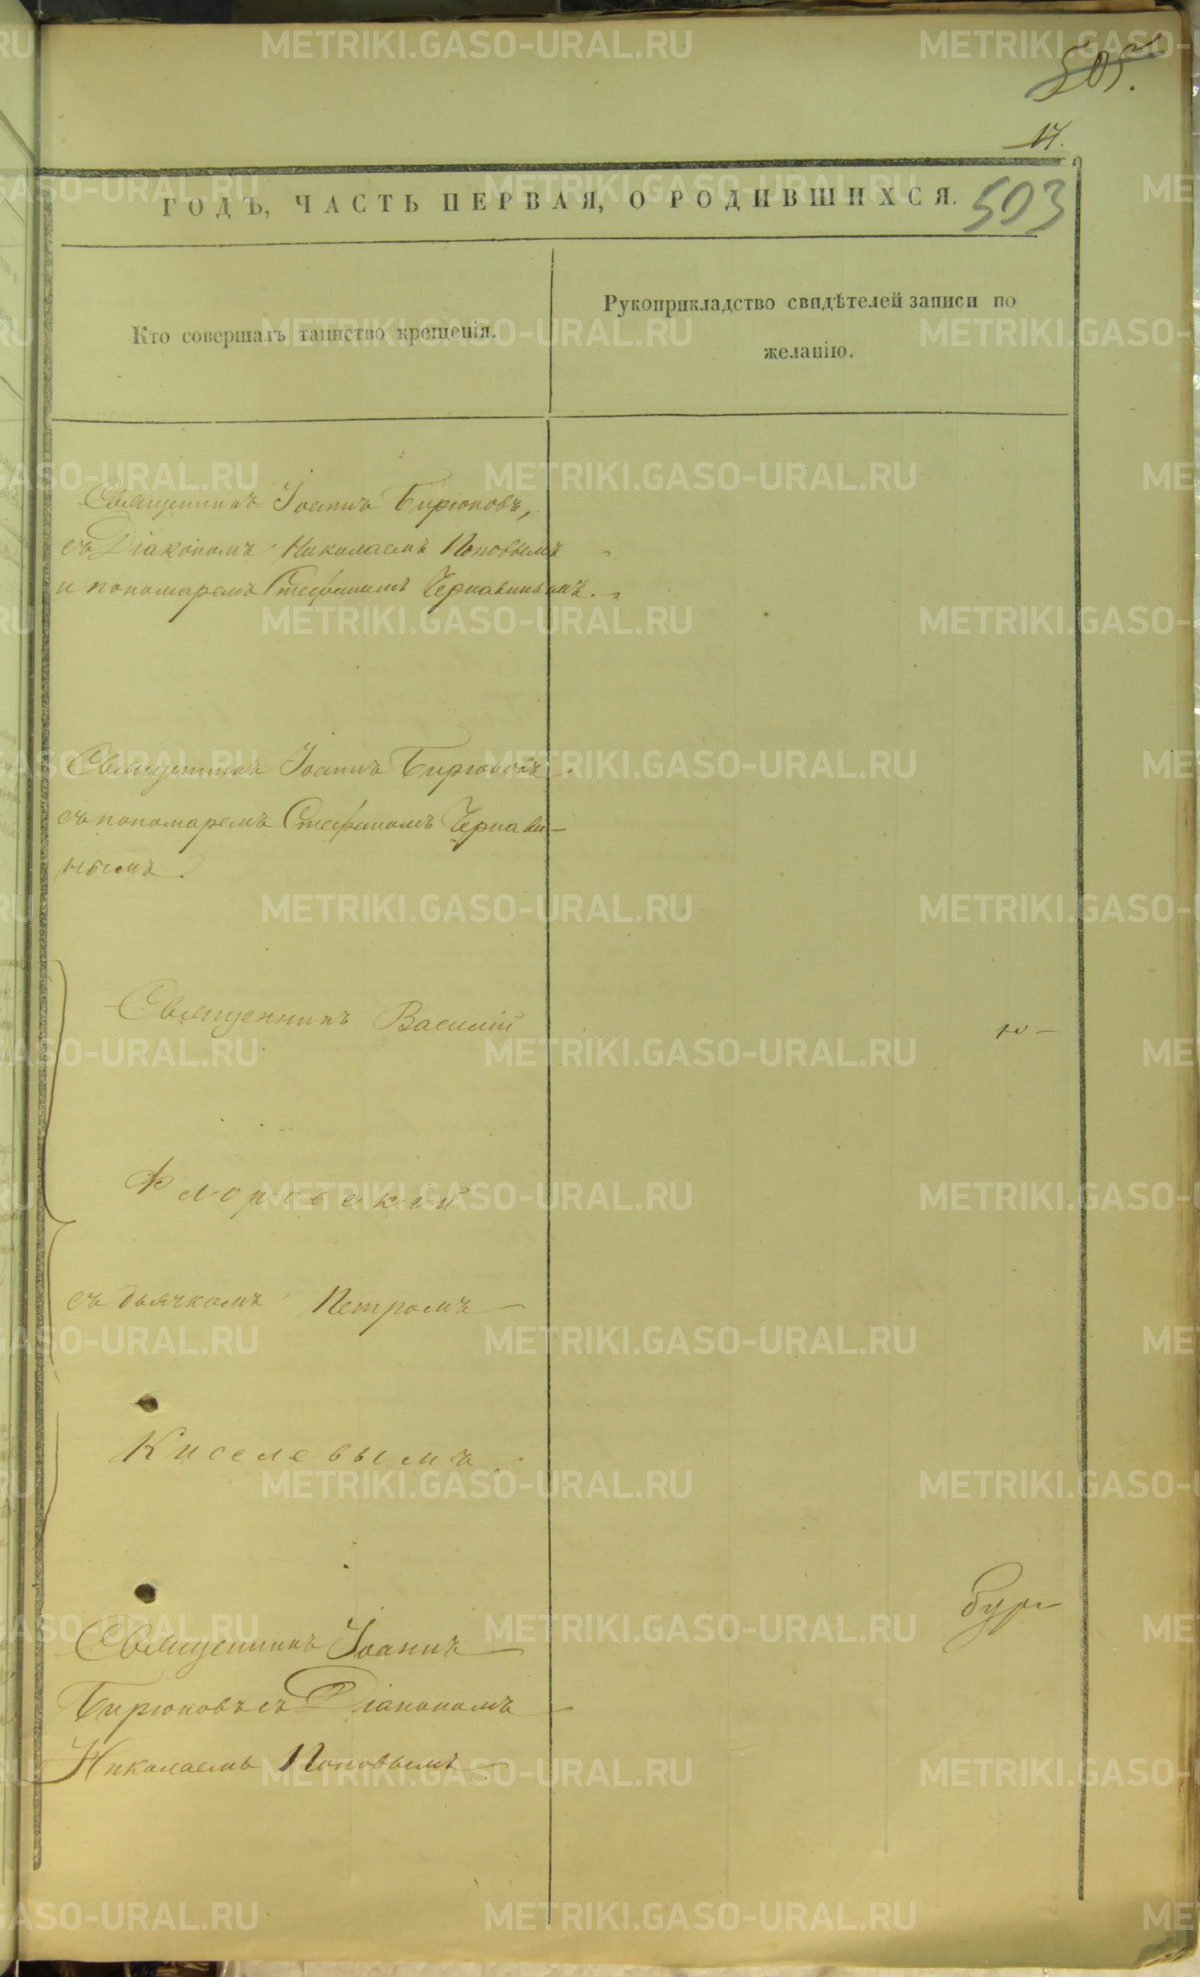 505.
17.
ГОДЪ, ЧАСТЬ ПЕРВАЯ, О РОДИВШИХСЯ.
503
Кто совершалъ таинство крещенія.
Рукоприкладство свидѣтелей записи по
желанію.
Священникъ Іоаннъ Бирюковъ,
съ Діакономъ Николаемъ Поповымъ
и пономаремъ Стефаномъ Чернавинымъ.
Священникъ Іоаннъ Бирюковъ
съ пономаремъ Стефаномъ Чернави-
нымъ.
Священникъ Василій
Флоровскій
съ дьячкомъ Петромъ
Киселевымъ.
Священникъ Іоаннъ
Бирюковъ съ Діакономъ
Николаемъ Поповымъ.
METRIKI.GASO-URAL.RU